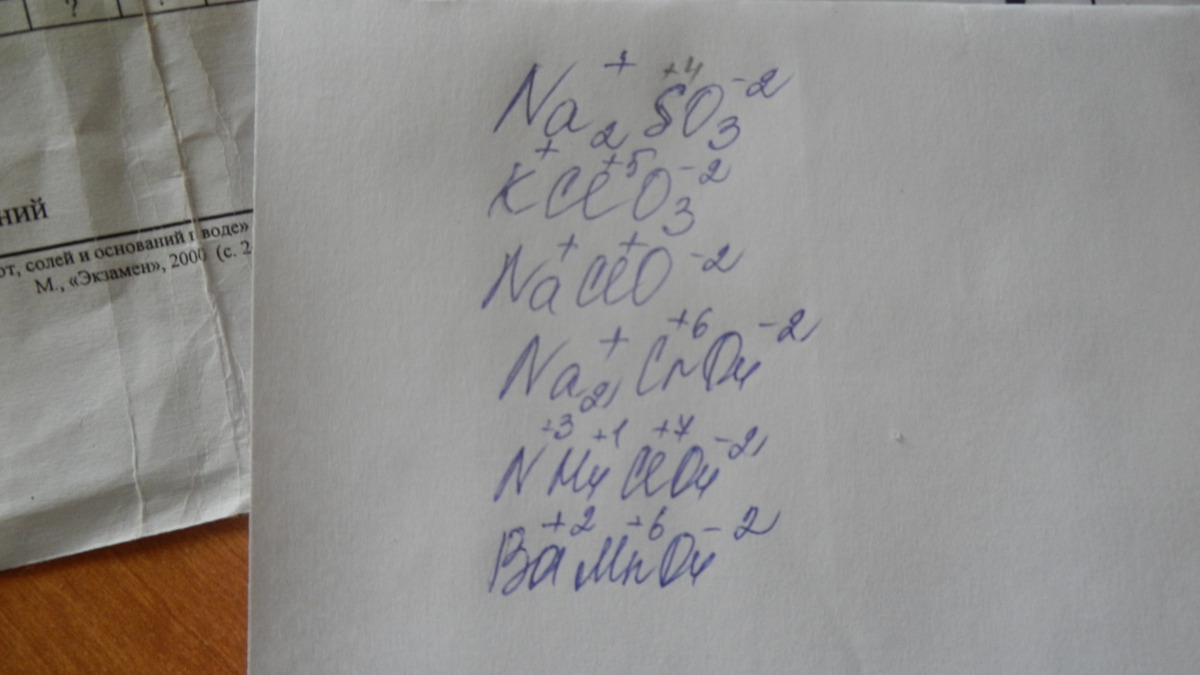 ?
ний
от, солей и оснований в воде»
М., «Экзамен», 2000 (с. 2
Na₂⁺S⁺⁴O₃⁻²
K⁺Cl⁺⁵O₃⁻²
Na⁺Cl⁺O⁻²
Na₂⁺Cr⁺⁶O₄⁻²
N⁻³H₄⁺¹Cl⁺⁷O₄⁻²
Ba⁺²Mn⁺⁶O₄⁻²